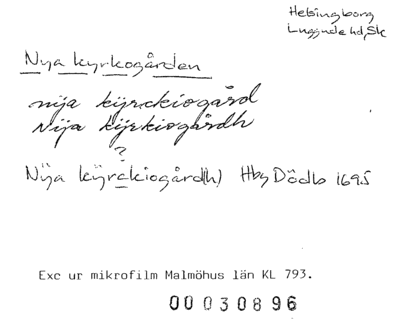 Helsingborg
Luggude hd, Sk
Nya kyrkogården
nija kÿrckiogård
Nÿa kÿrkiogårdh
?
Nÿa kÿrckiogård(h) Hbg Dödb 1695
Exc ur mikrofilm Malmöhus län KL 793.
00030896